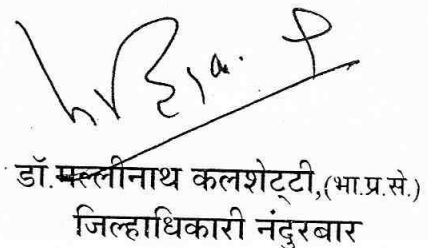 डॉ.मल्लीनाथ कलशेट्टी,(भा.प्र.से.)
जिल्हाधिकारी नंदुरबार